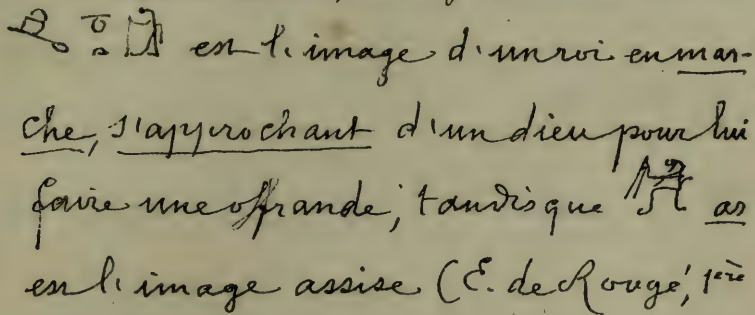 est l'image d'un roi en mar-
che, s'approchant d'un dieu pour lui
faire une offrande; tandis que as
est l'image assise (E. de Rougé, 1ère